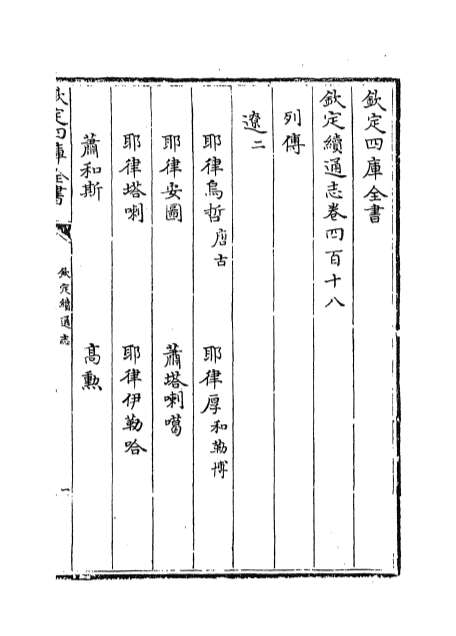 欽定四庫全書
欽定續通志卷四百十八
列傳
遼二
耶律烏哲唐古　耶律厚和勒博
耶律安圖　蕭塔喇噶
耶律塔喇　耶律伊勒哈
蕭和斯　高勲
欽定四庫全書
欽定續通志
一